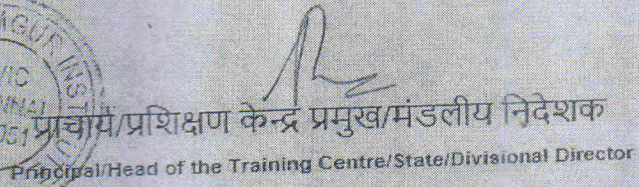 प्राचार्य/प्रशिक्षण केन्द्र प्रमुख/मंडलीय निदेशक
Principal/Head of the Training Centre/State/Divisional Director